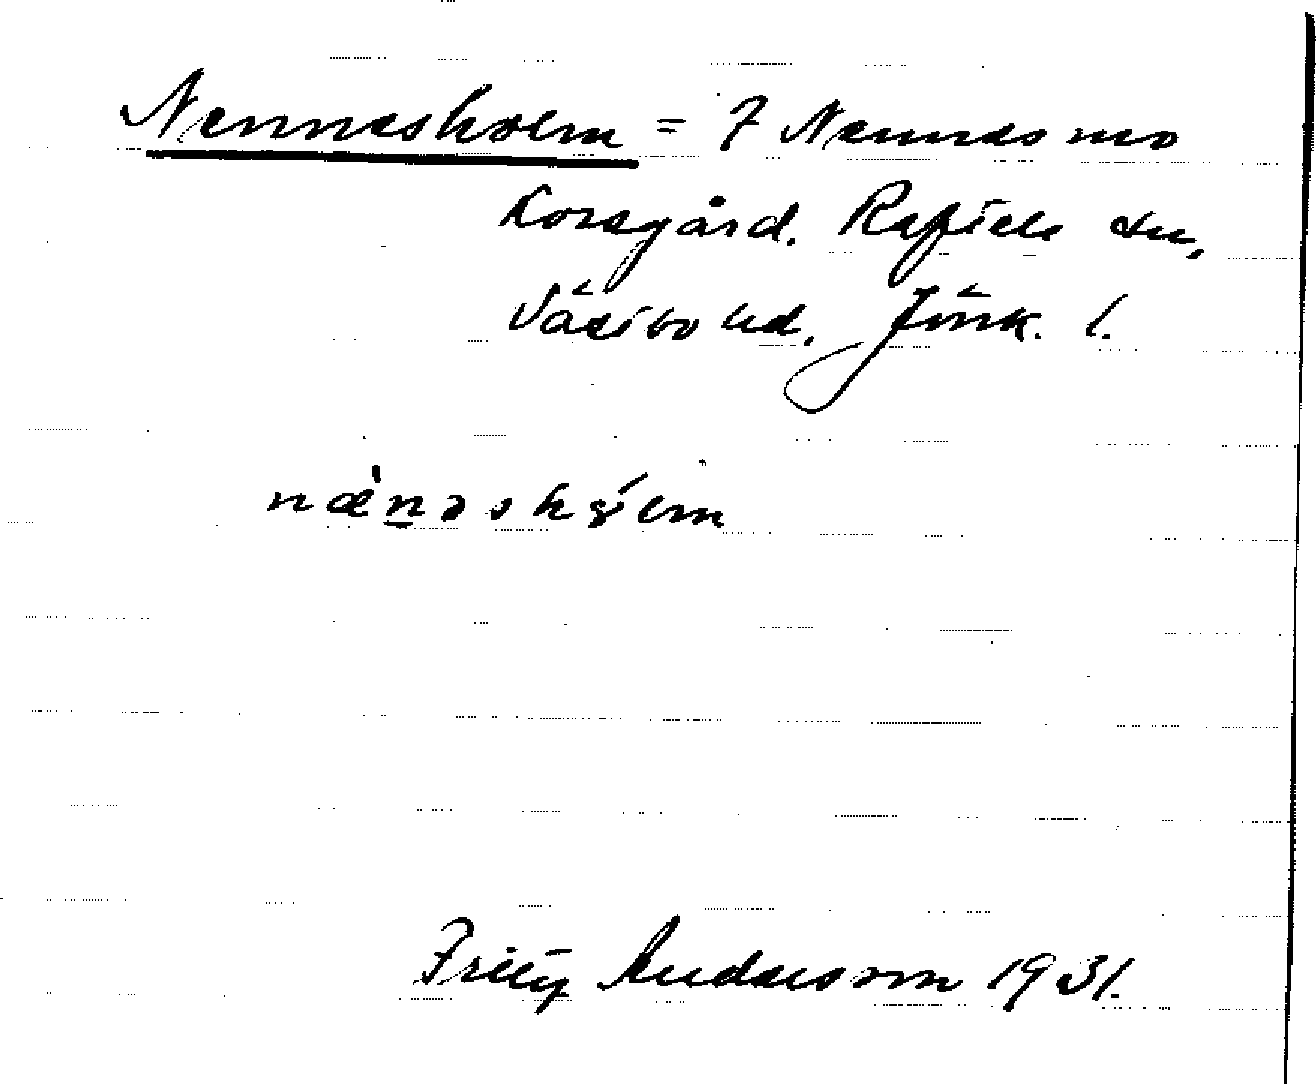 Nennesholm = 7 Nennesmo
Korsgård. Reftele sn,
Västbo hd, Jönk. l.
næ̀nəshɔ́lm
Fritz Andersson 1931.